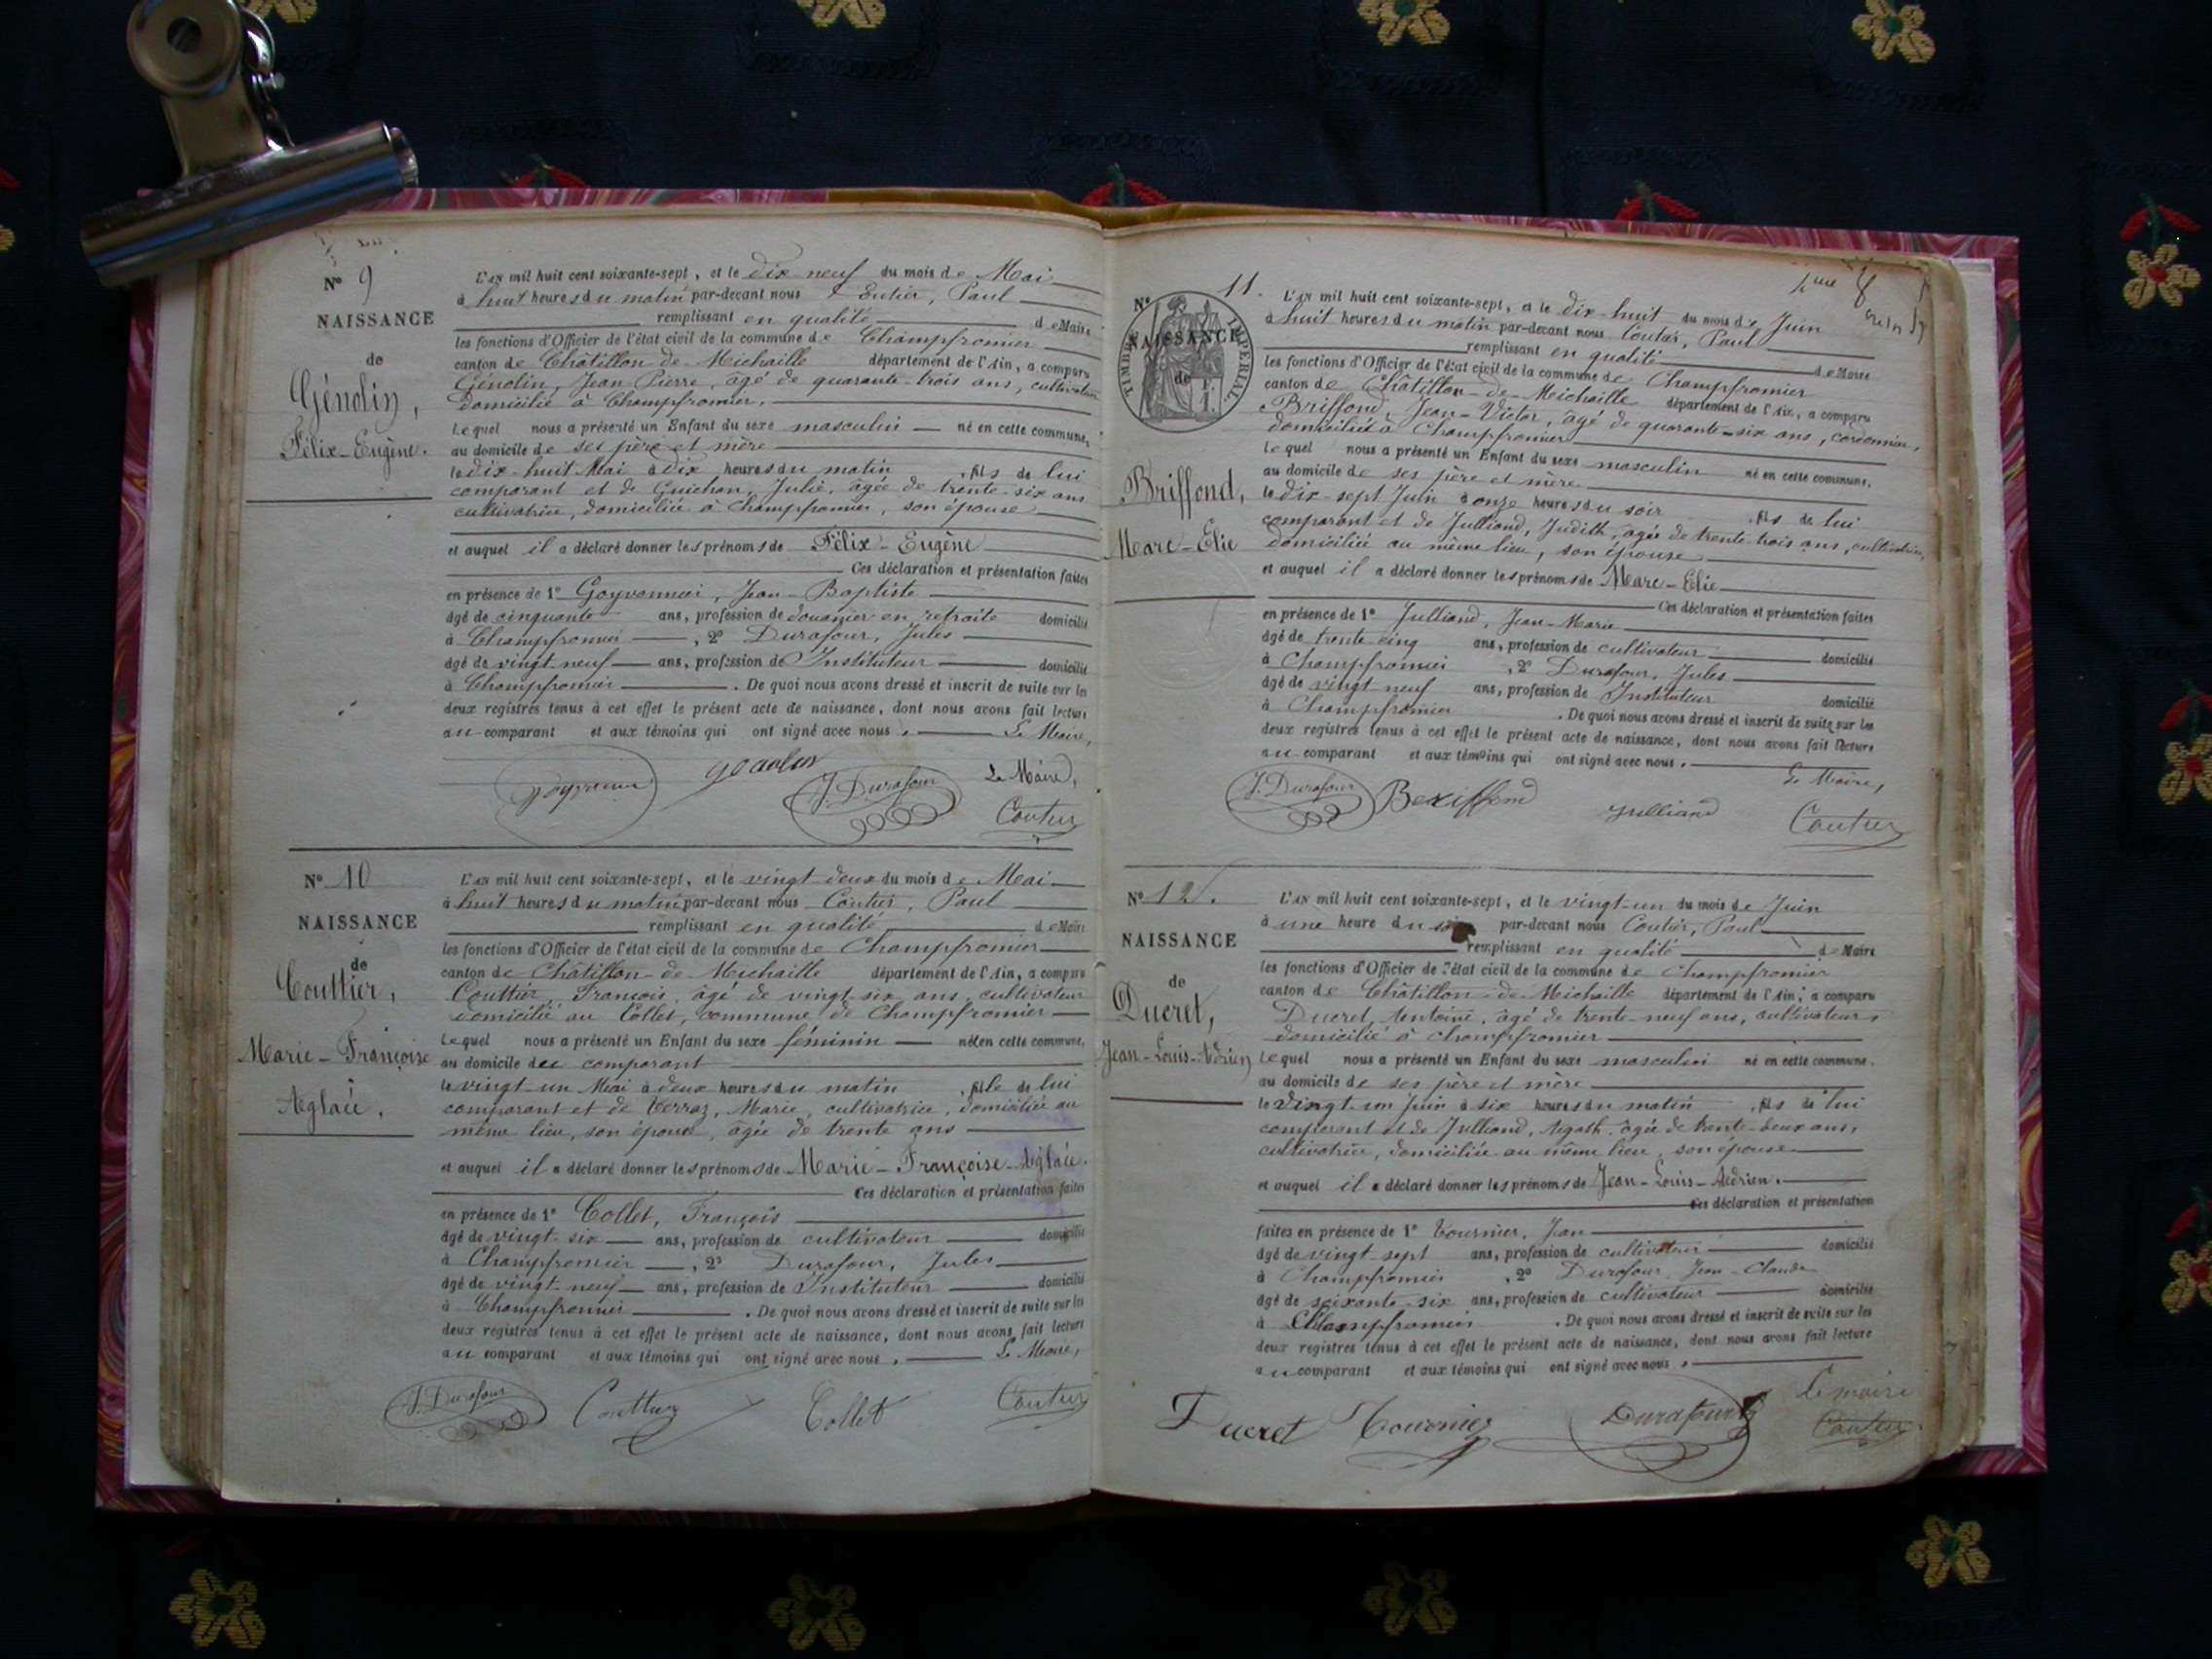 N° 9
NAISSANCE
de
Génolin,
Félix-Eugène.
L'an mil huit cent soixante-sept, et le dix-neuf du mois de Mai
à huit heures du matin par-devant nous Coutier, Paul
remplissant en qualité de Maire
les fonctions d'Officier de l'état civil de la commune de Champfromier
canton de Châtillon-de-Michaille département de l'Ain, a comparu
Génolin, Jean Pierre, âgé de quarante-trois ans, cultivateur
domicilié à Champfromier.
Lequel nous a présenté un Enfant du sexe masculin né en cette commune,
au domicile de ses père et mère
le dix-huit Mai à dix heures du matin, fils de lui
comparant et de Guichon, Julie, âgée de trente-six ans
cultivatrice, domiciliée à Champfromier, son épouse
et auquel il a déclaré donner les prénoms de Félix-Eugène
Ces déclaration et présentation faites
en présence de 1° Goyvannier, Jean-Baptiste
âgé de cinquante ans, profession de douanier en retraite domicilié
à Champfromier, 2° Durafour, Jules
âgé de vingt-neuf ans, profession de Instituteur domicilié
à Champfromier. De quoi nous avons dressé et inscrit de suite sur les
deux registres tenus à cet effet le présent acte de naissance, dont nous avons fait lecture
au comparant et aux témoins qui ont signé avec nous. Le Maire,
J. Durafour Le Maire,
Coutier
N° 10
NAISSANCE
de
Couttier,
Marie-Françoise
Aglaée.
L'an mil huit cent soixante-sept, et le vingt-deux du mois de Mai
à huit heures du matin par-devant nous Coutier, Paul
remplissant en qualité de Maire
les fonctions d'Officier de l'état civil de la commune de Champfromier
canton de Châtillon-de-Michaille département de l'Ain, a comparu
Couttier, François, âgé de vingt-six ans, cultivateur
domicilié au Collet, commune de Champfromier
Lequel nous a présenté un Enfant du sexe féminin née en cette commune,
au domicile du comparant
le vingt-un Mai à deux heures du matin, fille de lui
comparant et de Terraz, Marie, cultivatrice, domiciliée au
même lieu, son épouse, âgée de trente ans
et auquel il a déclaré donner les prénoms de Marie-Françoise-Aglaée.
Ces déclaration et présentation faites
en présence de 1° Collet, François
âgé de vingt-six ans, profession de cultivateur domicilié
à Champfromier, 2° Durafour, Jules
âgé de vingt-neuf ans, profession de Instituteur domicilié
à Champfromier. De quoi nous avons dressé et inscrit de suite sur les
deux registres tenus à cet effet le présent acte de naissance, dont nous avons fait lecture
au comparant et aux témoins qui ont signé avec nous. Le Maire,
J. Durafour Couttier Collet Coutier
N° 11.
TIMBRE IMPÉRIAL
NAISSANCE
de
Briffond,
Marc-Elie
L'an mil huit cent soixante-sept, et le dix-huit du mois de Juin
à huit heures du matin par-devant nous Coutier, Paul
remplissant en qualité de Maire
les fonctions d'Officier de l'état civil de la commune de Champfromier
canton de Châtillon-de-Michaille département de l'Ain, a comparu
Briffond, Jean-Victor, âgé de quarante-six ans, cordonnier,
domicilié à Champfromier
Lequel nous a présenté un Enfant du sexe masculin né en cette commune,
au domicile de ses père et mère
le dix-sept Juin à onze heures du soir, fils de lui
comparant et de Julliand, Judith, âgée de trente-trois ans, cultivatrice,
domiciliée au même lieu, son épouse
et auquel il a déclaré donner les prénoms de Marc-Elie
Ces déclaration et présentation faites
en présence de 1° Julliand, Jean-Marie
âgé de trente-cinq ans, profession de cultivateur domicilié
à Champfromier, 2° Durafour, Jules
âgé de vingt neuf ans, profession de Instituteur domicilié
à Champfromier. De quoi nous avons dressé et inscrit de suite sur les
deux registres tenus à cet effet le présent acte de naissance, dont nous avons fait lecture
au comparant et aux témoins qui ont signé avec nous.
Le Maire,
J. Durafour Beriffond Julliand Coutier
N° 12.
NAISSANCE
de
Ducret,
Jean-Louis-Adrien
L'an mil huit cent soixante-sept, et le vingt-un du mois de Juin
à une heure du soir par-devant nous Coutier, Paul
remplissant en qualité de Maire
les fonctions d'Officier de l'état civil de la commune de Champfromier
canton de Châtillon-de-Michaille département de l'Ain, a comparu
Ducret, Antoine, âgé de trente-neuf ans, cultivateur,
domicilié à Champfromier
Lequel nous a présenté un Enfant du sexe masculin né en cette commune,
au domicile de ses père et mère
le vingt-un Juin à six heures du matin, fils de lui
comparant et de Julliand, Agath, âgée de trente-deux ans,
cultivatrice, domiciliée au même lieu, son épouse
et auquel il a déclaré donner les prénoms de Jean-Louis-Adrien.
Ces déclaration et présentation
faites en présence de 1° Tournier, Jean
âgé de vingt sept ans, profession de cultivateur domicilié
à Champfromier, 2° Durafour, Jean-Claude
âgé de soixante-six ans, profession de cultivateur domicilié
à Champfromier. De quoi nous avons dressé et inscrit de suite sur les
deux registres tenus à cet effet le présent acte de naissance, dont nous avons fait lecture
au comparant et aux témoins qui ont signé avec nous.
Le maire
Ducret Tournier Durafour Coutier